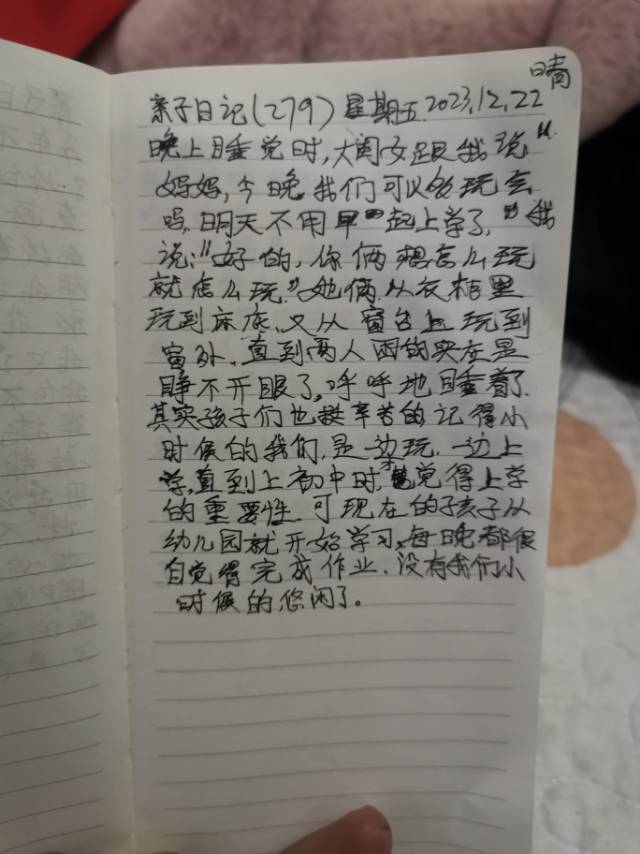 晴
亲子日记(279)星期五.2023.12.22
晚上睡觉时,大闺女跟我说"
妈妈,今晚我们可以多玩会
吗,明天不用早起上学了,"我
说:"好的,你俩想怎么玩
就怎么玩."她俩从衣柜里
玩到床底,又从窗台上玩到
窗外.直到两人困的实在是
睁不开眼了,呼呼地睡着了.
其实孩子们也挺辛苦的记得小
时候的我们,是一边玩.一边上
学,直到上初中时,才觉得上学
的重要性.可现在的孩子从
幼儿园就开始学习,每晚都很
自觉得完成作业.没有我们小
时候的悠闲了.